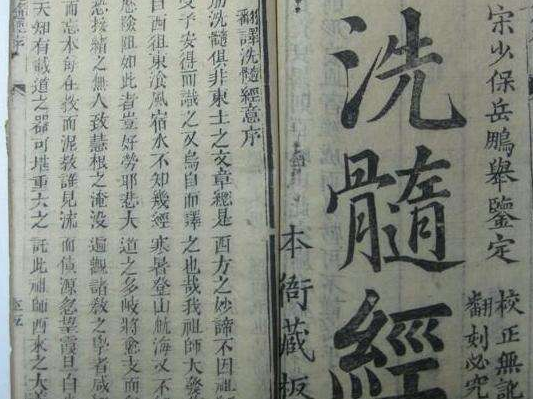 宋少保岳鵬舉鑒定
校正無訛
翻刻必究
洗髓經
本衙藏板
翻譯洗髓經意序
筋洗髓俱非東土之文章總是西方之妙諦不因祖
予安得而識之又烏自而譯之也哉我祖師大發
自西徂東餐風宿水不知幾經寒暑登山航海又不
歷險阻如此者豈好勞耶悲大道之多岐將愈支而
恐接緒之無人致慧根之淹没遍觀諸教之學者咸
而忘本每在教而泥教誰見流而源忽望霞旦白
天知有載道之器可堪重大之託此祖師西來之大